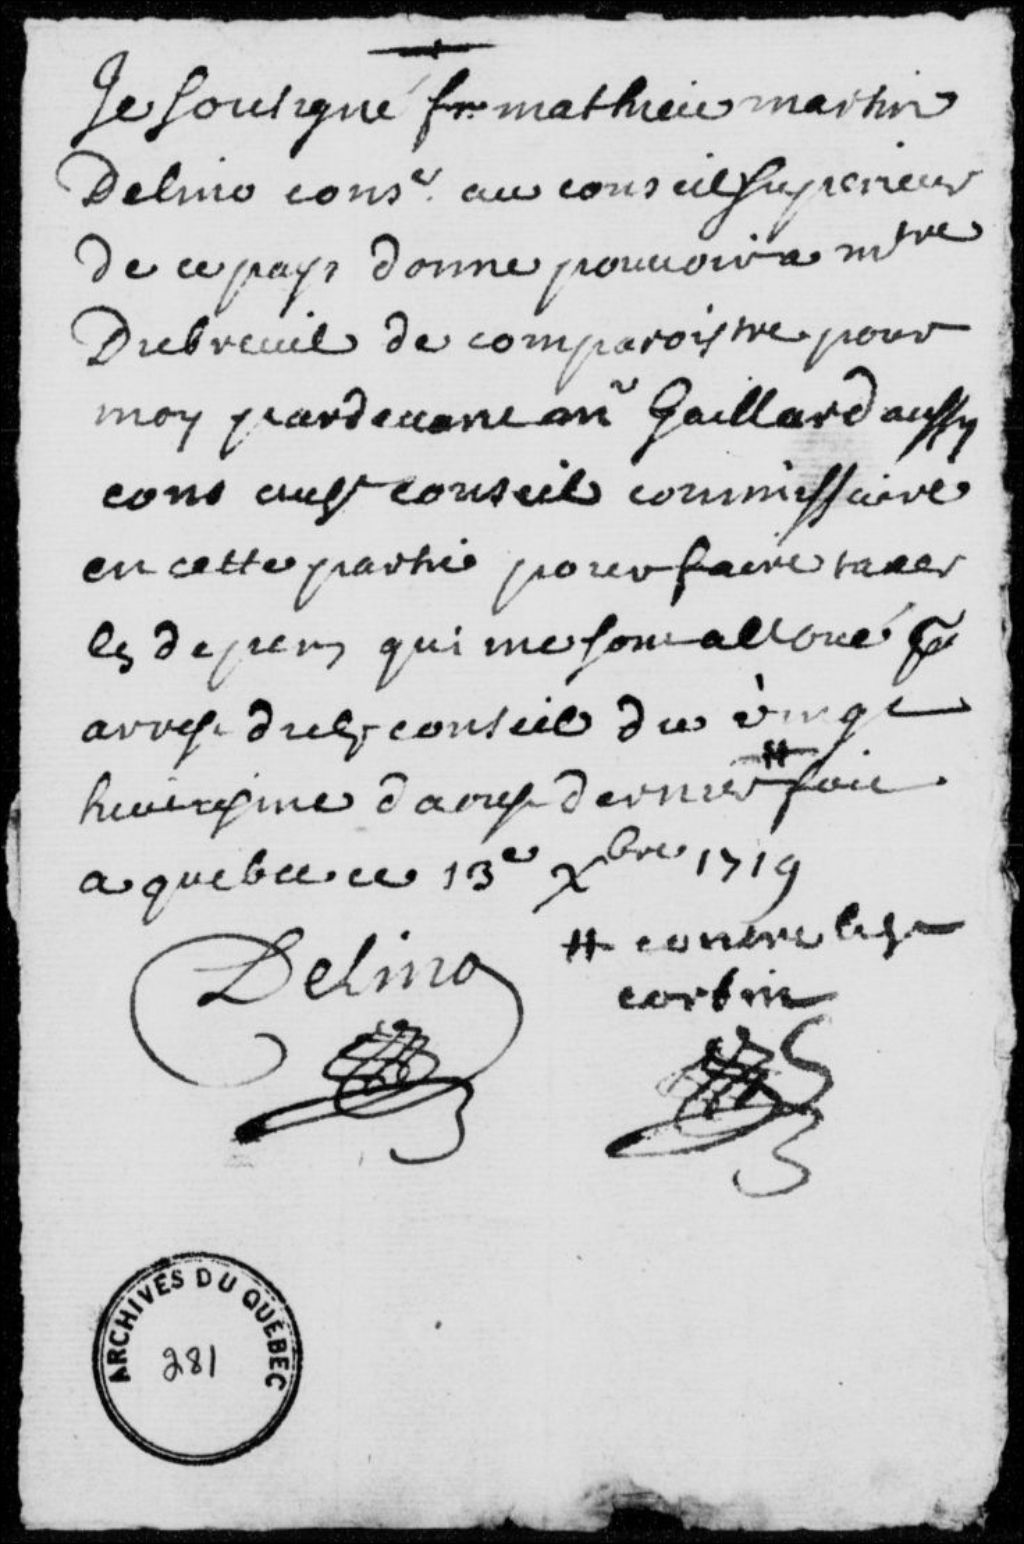 Je sousigné fr. mathieu martin
Delino cons.er au conseil superieur
de ce pays donne pouuoir a mtre
Dubreuil de comparoistre pour
moy pardeuant mr Gaillard aussy
cons audt conseil commissaire
en cette partie pour faire taxer
les depens qui me sont alloué par
arrest dudt conseil du vingt
huitiesme daoust dernier # fait
a quebec ce 13e xbre 1719
Delino
# contre ledt
corbin
ARCHIVES DU QUÉBEC
281